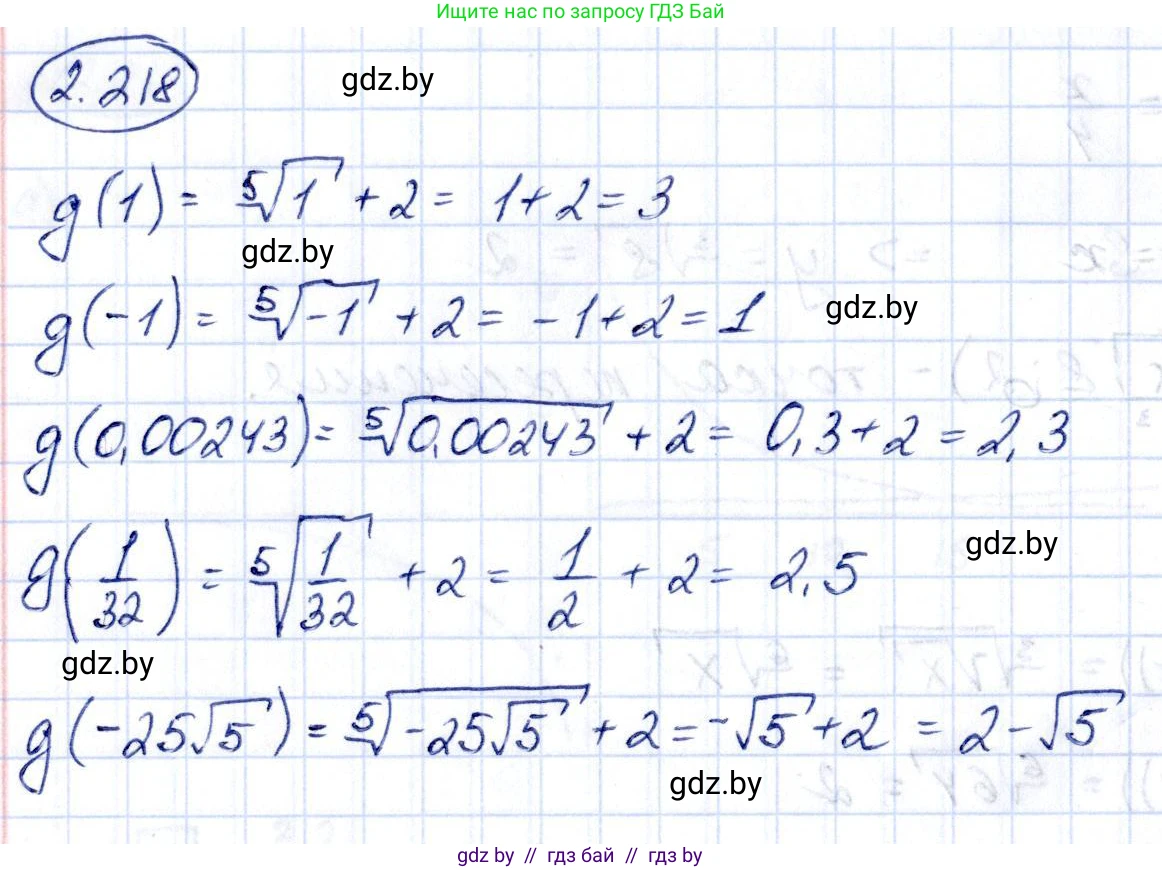 Ищите нас по запросу ГДЗ Бай
2.218
gdz.by
g(1) = ⁵√1 + 2 = 1 + 2 = 3
gdz.by
g(-1) = ⁵√-1 + 2 = -1 + 2 = 1
gdz.by
g(0,00243) = ⁵√0,00243 + 2 = 0,3 + 2 = 2,3
gdz.by
g(1/32) = ⁵√1/32 + 2 = 1/2 + 2 = 2,5
gdz.by
g(-25√5) = ⁵√-25√5 + 2 = -√5 + 2 = 2 - √5
gdz.by
gdz by // гдз бай // гдз by